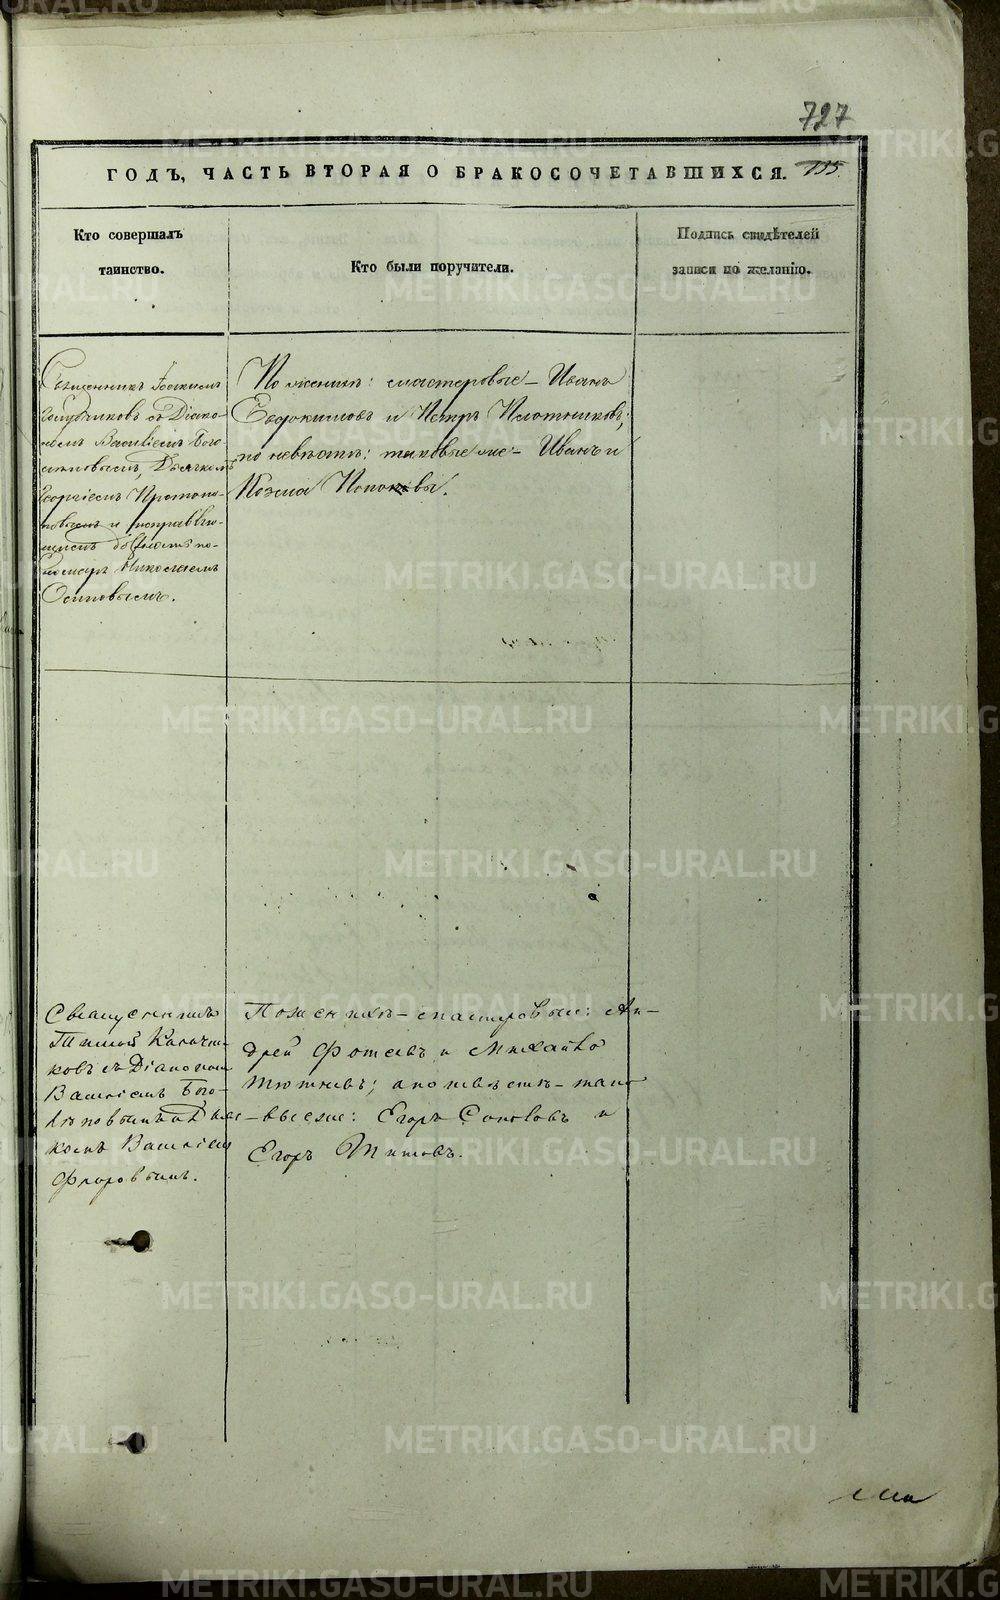 727
ГОДЪ, ЧАСТЬ ВТОРАЯ О БРАКОСОЧЕТАВШИХСЯ. 155.
Кто совершалъ
таинство.
Кто были поручители.
Подпись свидѣтелей
записи по желанію.
Священникъ Іоакимъ
съ Діако-
номъ Василіемъ Бого-
лѣповымъ, Дьячкомъ
Георгіемъ Протопо-
повымъ и исправляю-
щимъ должность по-
номаря Николаемъ
Осиповымъ.
По женихѣ: мастеровые – Иванъ
Евдокимовъ и Петръ Плотниковъ;
по невѣстѣ: таковые же – Иванъ и
Козма Поповы.
Священникъ
Калачни-
ковъ съ Діакономъ
Василіемъ Бого-
лѣповымъ и Дьяч-
комъ Василіемъ
Флоровымъ.
По женихѣ – мастеровые: Ан-
дрей Фотеевъ и Михайло
Тютневъ; а по невѣстѣ – тако-
вые же: Егоръ Соколовъ и
Егоръ Титовъ.
METRIKI.GASO-URAL.RU